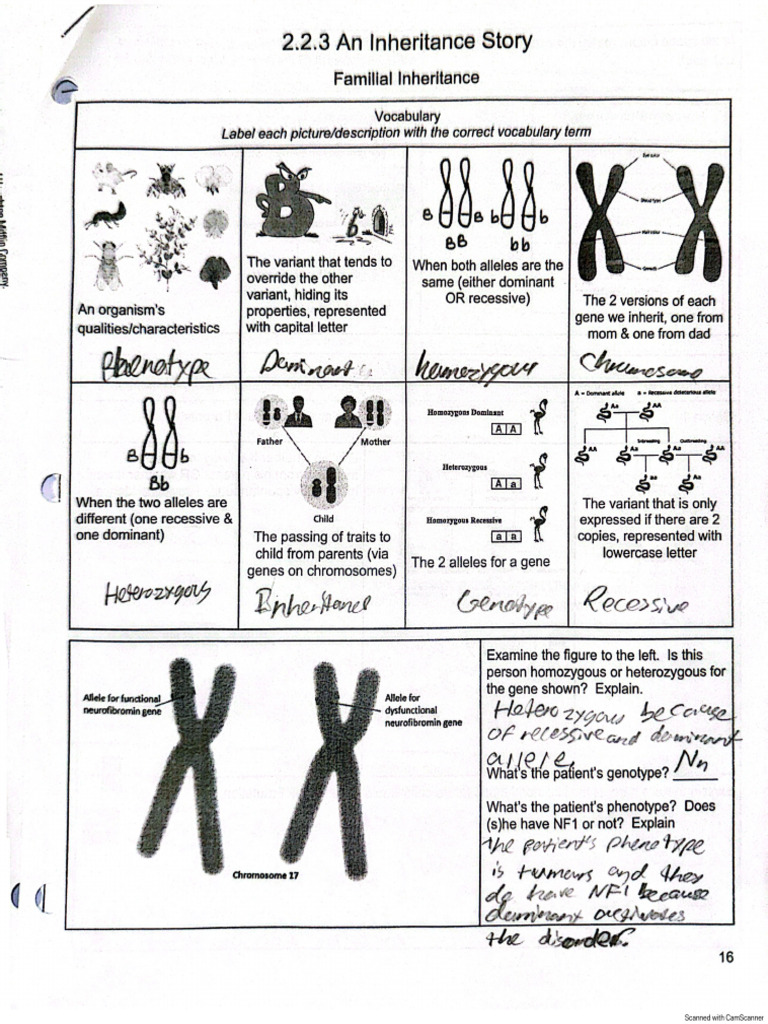 2.2.3 An Inheritance Story
Familial Inheritance
Vocabulary
Label each picture/description with the correct vocabulary term
An organism's
qualities/characteristics
Phenotype
B
The variant that tends to
override the other
variant, hiding its
properties, represented
with capital letter
Dominant
B B b b
BB bb
When both alleles are the
same (either dominant
OR recessive)
homozygous
Eye color
Blood type
Hair color
Growth
The 2 versions of each
gene we inherit, one from
mom & one from dad
Chromosome
B b
Bb
When the two alleles are
different (one recessive &
one dominant)
Heterozygous
Father Mother
Child
The passing of traits to
child from parents (via
genes on chromosomes)
Inheritance
Homozygous Dominant
A A
Heterozygous
A a
Homozygous Recessive
a a
The 2 alleles for a gene
Genotype
A = Dominant allele a = Recessive deleterious allele
Aa AA
Inbreeding Outbreeding
AA Aa Aa AA
aa Aa
The variant that is only
expressed if there are 2
copies, represented with
lowercase letter
Recessive
Allele for functional
neurofibromin gene
Allele for
dysfunctional
neurofibromin gene
Chromosome 17
Examine the figure to the left. Is this
person homozygous or heterozygous for
the gene shown? Explain.
Heterozygous because
of recessive and dominant
allele.
What's the patient's genotype? Nn
What's the patient's phenotype? Does
(s)he have NF1 or not? Explain
the patient's phenotype
is tumors and they
do have NF1 because
dominant
the disorder.
16
Scanned with CamScanner